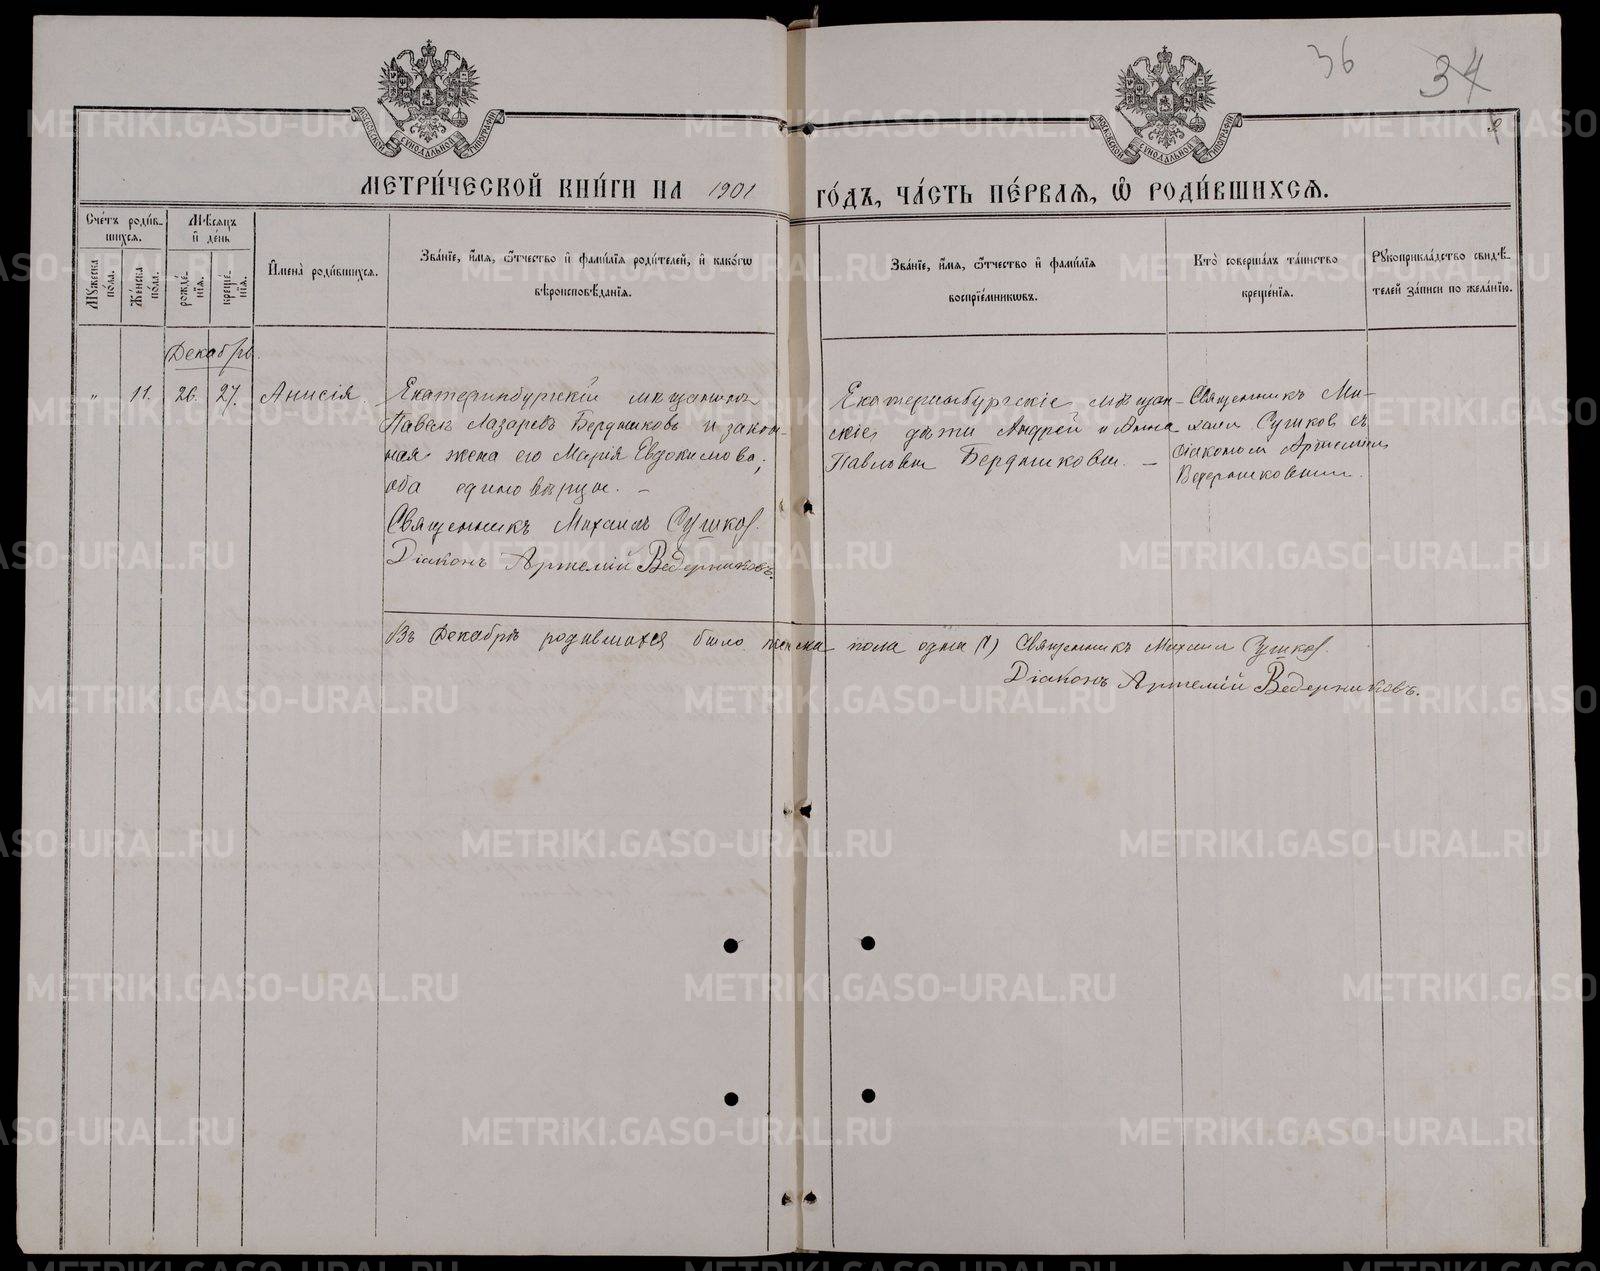 36
34
МОСКОВСКОЙ СѴНОДАЛЬНОЙ ТИПОГРАФІИ
МОСКОВСКОЙ СѴНОДАЛЬНОЙ ТИПОГРАФІИ
МЕТРИ́ЧЕСКОЙ КНИ́ГИ НА 1901 ГО́ДЪ, ЧА́СТЬ ПЕ́РВАЯ, Ѡ҆ РОДИ́ВШИХСЯ.
Сче́тъ роди́в-
шихся.
Му́жеска по́ла.
Же́нска по́ла.
Мѣ́сяцъ
и҆ де́нь
рожде́-
нїя.
креще́-
нїя.
И҆мена̀ роди́вшихся.
Зва́нїе, и҆́мя, ѻ҆́тчество и҆ фами́лїя роди́телей, и҆ како́гѡ
вѣроисповѣ́данїя.
Зва́нїе, и҆́мя, ѻ҆́тчество и҆ фами́лїя
воспрїе́мникѡвъ.
Кто̀ соверша́лъ та́инство
креще́нїя.
Рꙋкоприкла́дство свидѣ́-
телей за́писи по жела́нїю.
Декабрь.
„ 11. 26. 27. Анисія.
Екатеринбургскій мѣщанинъ
Павелъ Лазаревъ Бердниковъ и закон-
ная жена его Марія Евдокимова;
оба единовѣрцы. —
Священникъ Михаилъ Сушков.
Діаконъ Артемій Ведерниковъ.
Екатеринбургскіе мѣщан-
скіе дѣти Андрей и Анна
Павловы Бердниковы. —
Священникъ Ми-
хаил Сушков съ
діакономъ Артеміемъ
Ведерниковымъ.
Въ Декабрѣ родившихся было женска пола одна (1) Священникъ Михаил Сушков.
Діаконъ Артемій Ведерниковъ.
METRIKI.GASO-URAL.RU